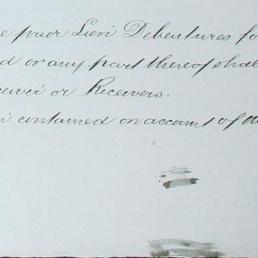 e prior Lien Debentures fo
d or any part thereof shal
ceiver or Receivers.
contained on account of th